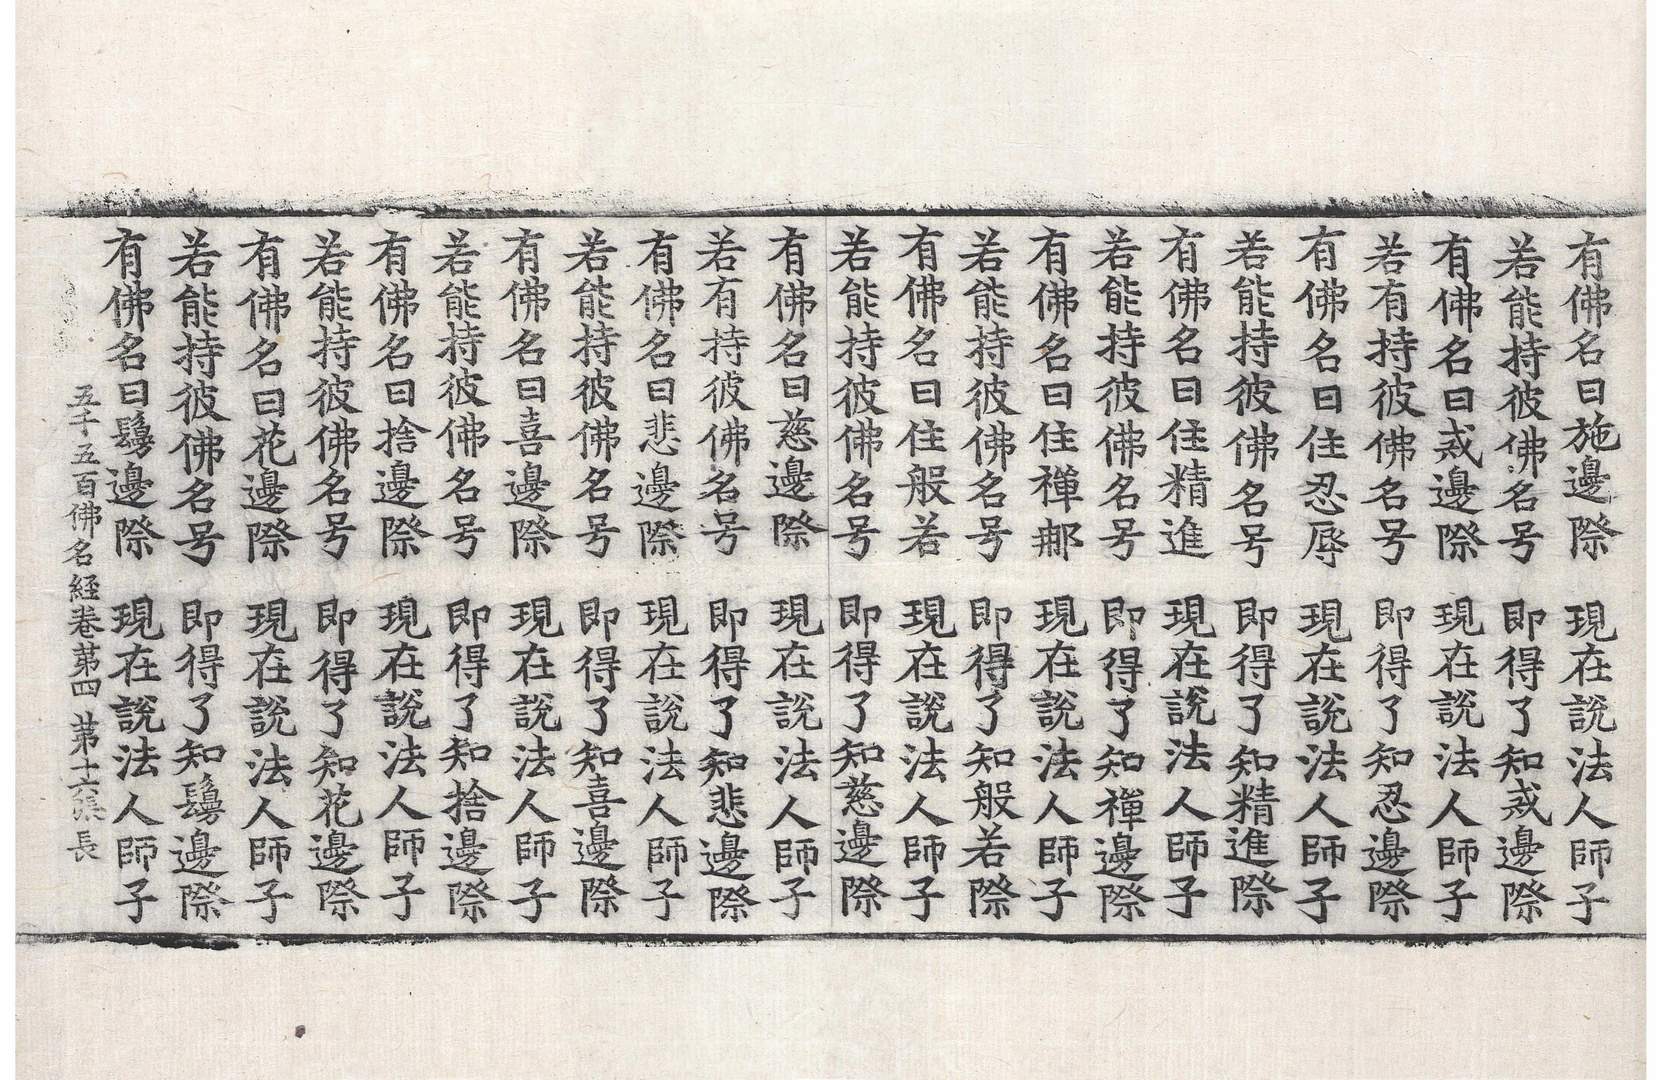 有佛名曰施邊際　現在說法人師子
若能持彼佛名号　即得了知戒邊際
有佛名曰戒邊際　現在說法人師子
若有持彼佛名号　即得了知忍邊際
有佛名曰住忍辱　現在說法人師子
若能持彼佛名号　即得了知精進際
有佛名曰住精進　現在說法人師子
若能持彼佛名号　即得了知禪邊際
有佛名曰住禪那　現在說法人師子
若能持彼佛名号　即得了知般若際
有佛名曰住般若　現在說法人師子
若能持彼佛名号　即得了知慈邊際
有佛名曰慈邊際　現在說法人師子
若有持彼佛名号　即得了知悲邊際
有佛名曰悲邊際　現在說法人師子
若能持彼佛名号　即得了知喜邊際
有佛名曰喜邊際　現在說法人師子
若能持彼佛名号　即得了知捨邊際
有佛名曰捨邊際　現在說法人師子
若能持彼佛名号　即得了知花邊際
有佛名曰花邊際　現在說法人師子
若能持彼佛名号　即得了知鬘邊際
有佛名曰鬘邊際　現在說法人師子
五千五百佛名経卷苐四　苐十六張　長